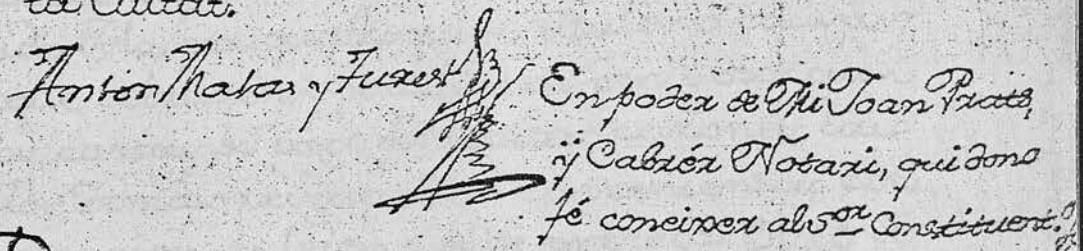 ta Ciutat.
Anton Matas y Furest
En poder de Mi Joan Prats,
ÿ Cabrér Notari, qui dono
fé coneixer al Sor Constituent.